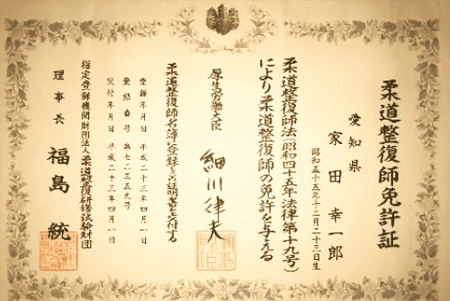 柔道整復師免許証
愛知県
家田幸一郎
昭和五十五年十二月二十三日生
柔道整復師法(昭和四十五年法律第十九号)
により柔道整復師の免許を与える
厚生労働大臣 細川律夫
柔道整復師名簿に登録し此の証明書を交付する
登録年月日 平成二十三年四月一日
登録番号 第七二三五九号
交付年月日 平成二十三年五月一日
指定登録機関財団法人柔道整復研修試験財団
理事長 福島統